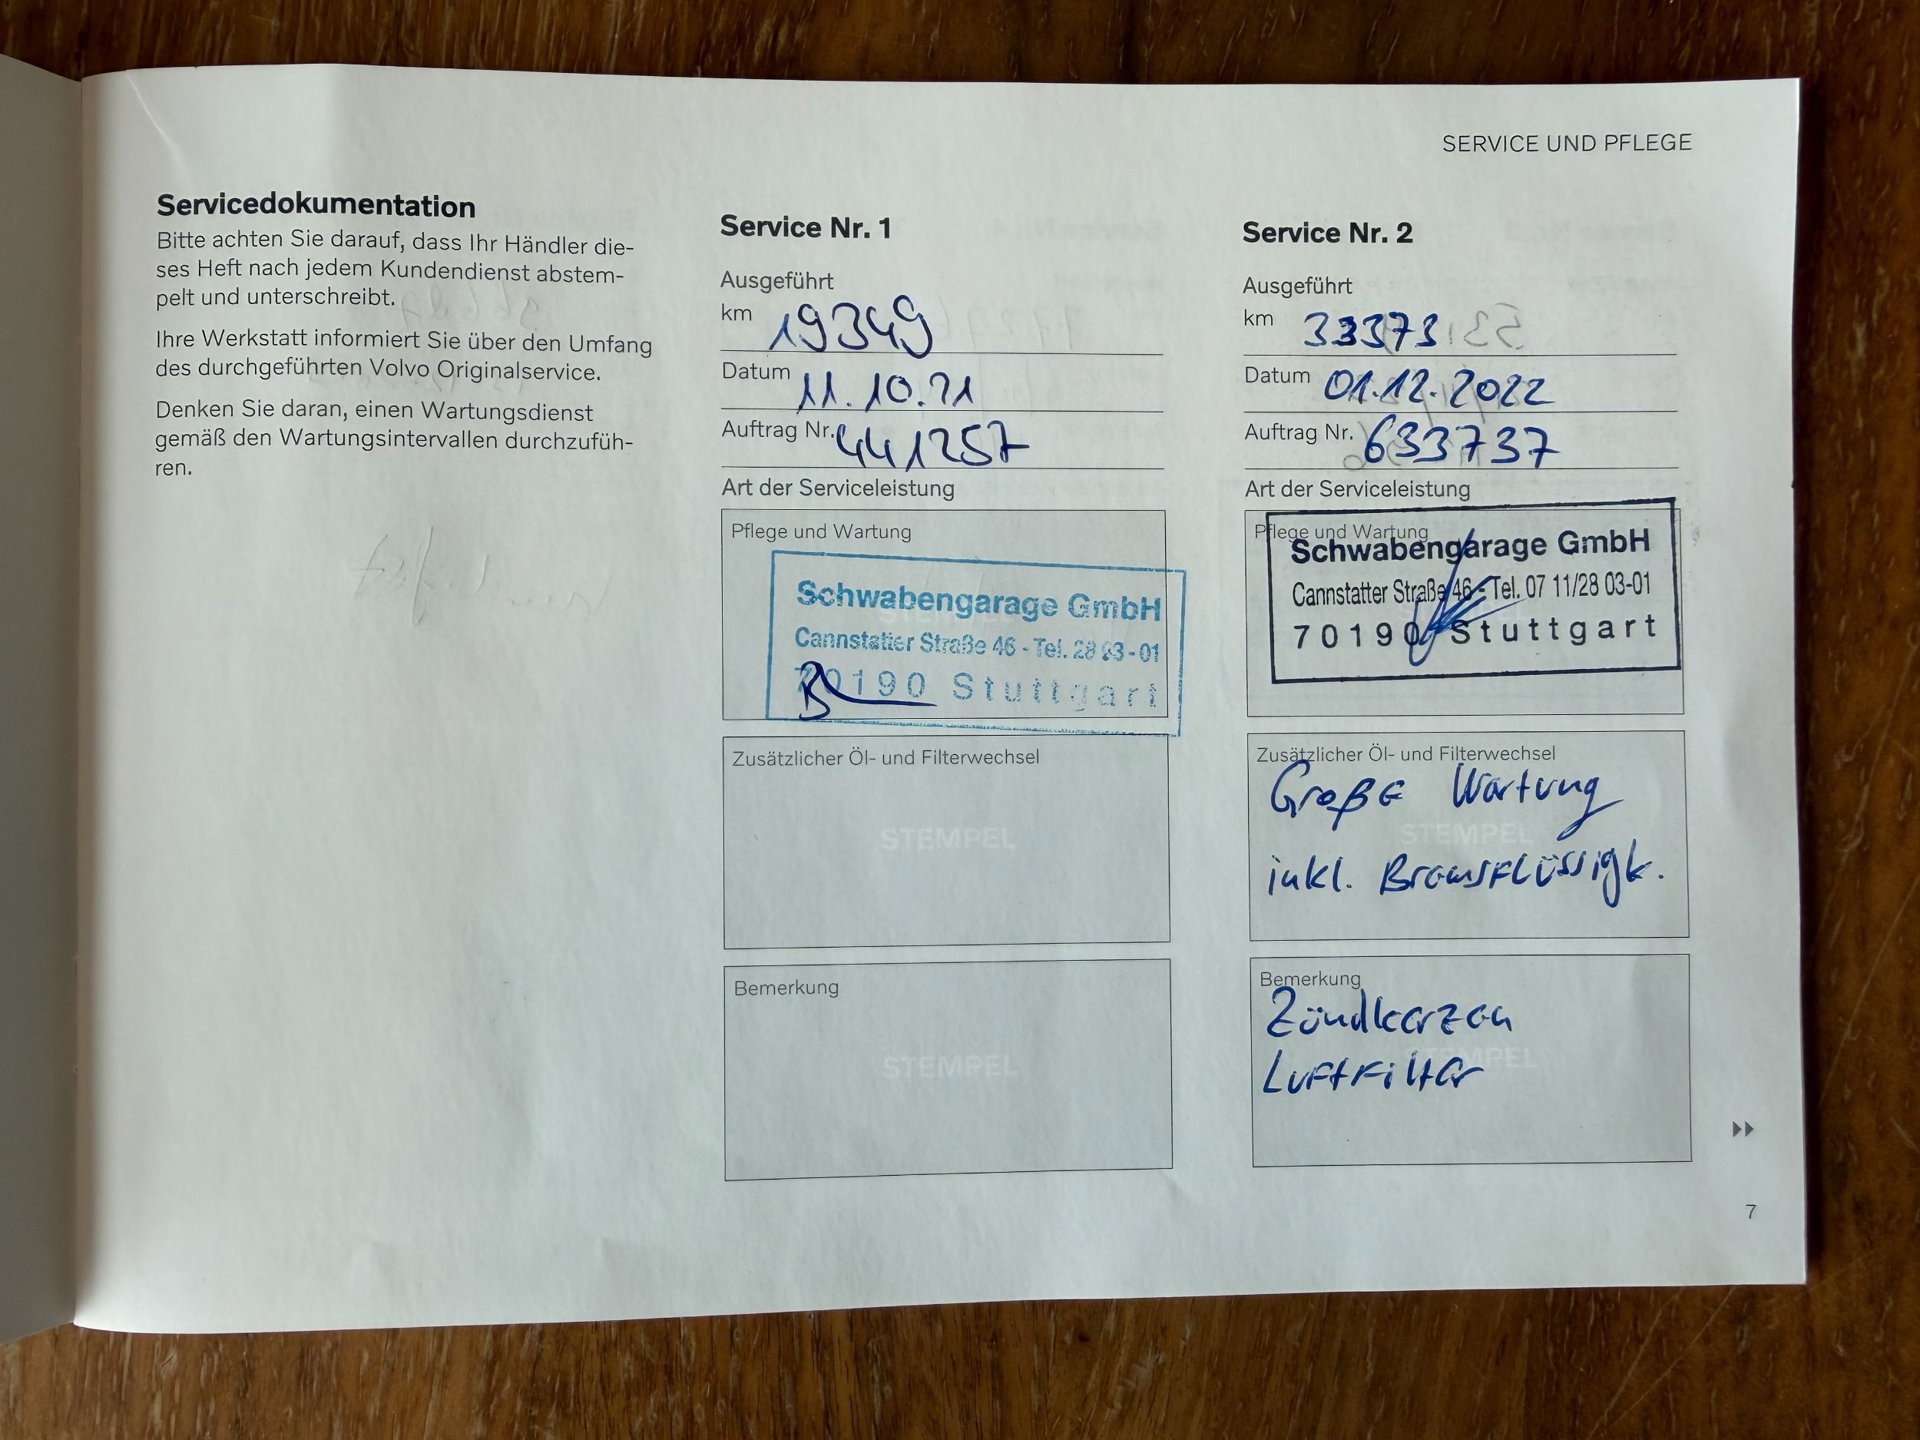 SERVICE UND PFLEGE
Servicedokumentation
Bitte achten Sie darauf, dass Ihr Händler die-
ses Heft nach jedem Kundendienst abstem-
pelt und unterschreibt.
Ihre Werkstatt informiert Sie über den Umfang
des durchgeführten Volvo Originalservice.
Denken Sie daran, einen Wartungsdienst
gemäß den Wartungsintervallen durchzufüh-
ren.
Service Nr. 1
Ausgeführt
km 19349
Datum 11.10.21
Auftrag Nr. 441257
Art der Serviceleistung
Pflege und Wartung
Schwabengarage GmbH
Cannstatter Straße 46 - Tel. 28 03-01
70190 Stuttgart
Zusätzlicher Öl- und Filterwechsel
STEMPEL
Bemerkung
STEMPEL
Service Nr. 2
Ausgeführt
km 33373
Datum 01.12.2022
Auftrag Nr. 633737
Art der Serviceleistung
Pflege und Wartung
Schwabengarage GmbH
Cannstatter Straße 46 - Tel. 07 11/28 03-01
70190 Stuttgart
Zusätzlicher Öl- und Filterwechsel
Große Wartung
STEMPEL
inkl. Bremsflüssigk.
Bemerkung
Zündkerzen
Luftfilter
STEMPEL
7